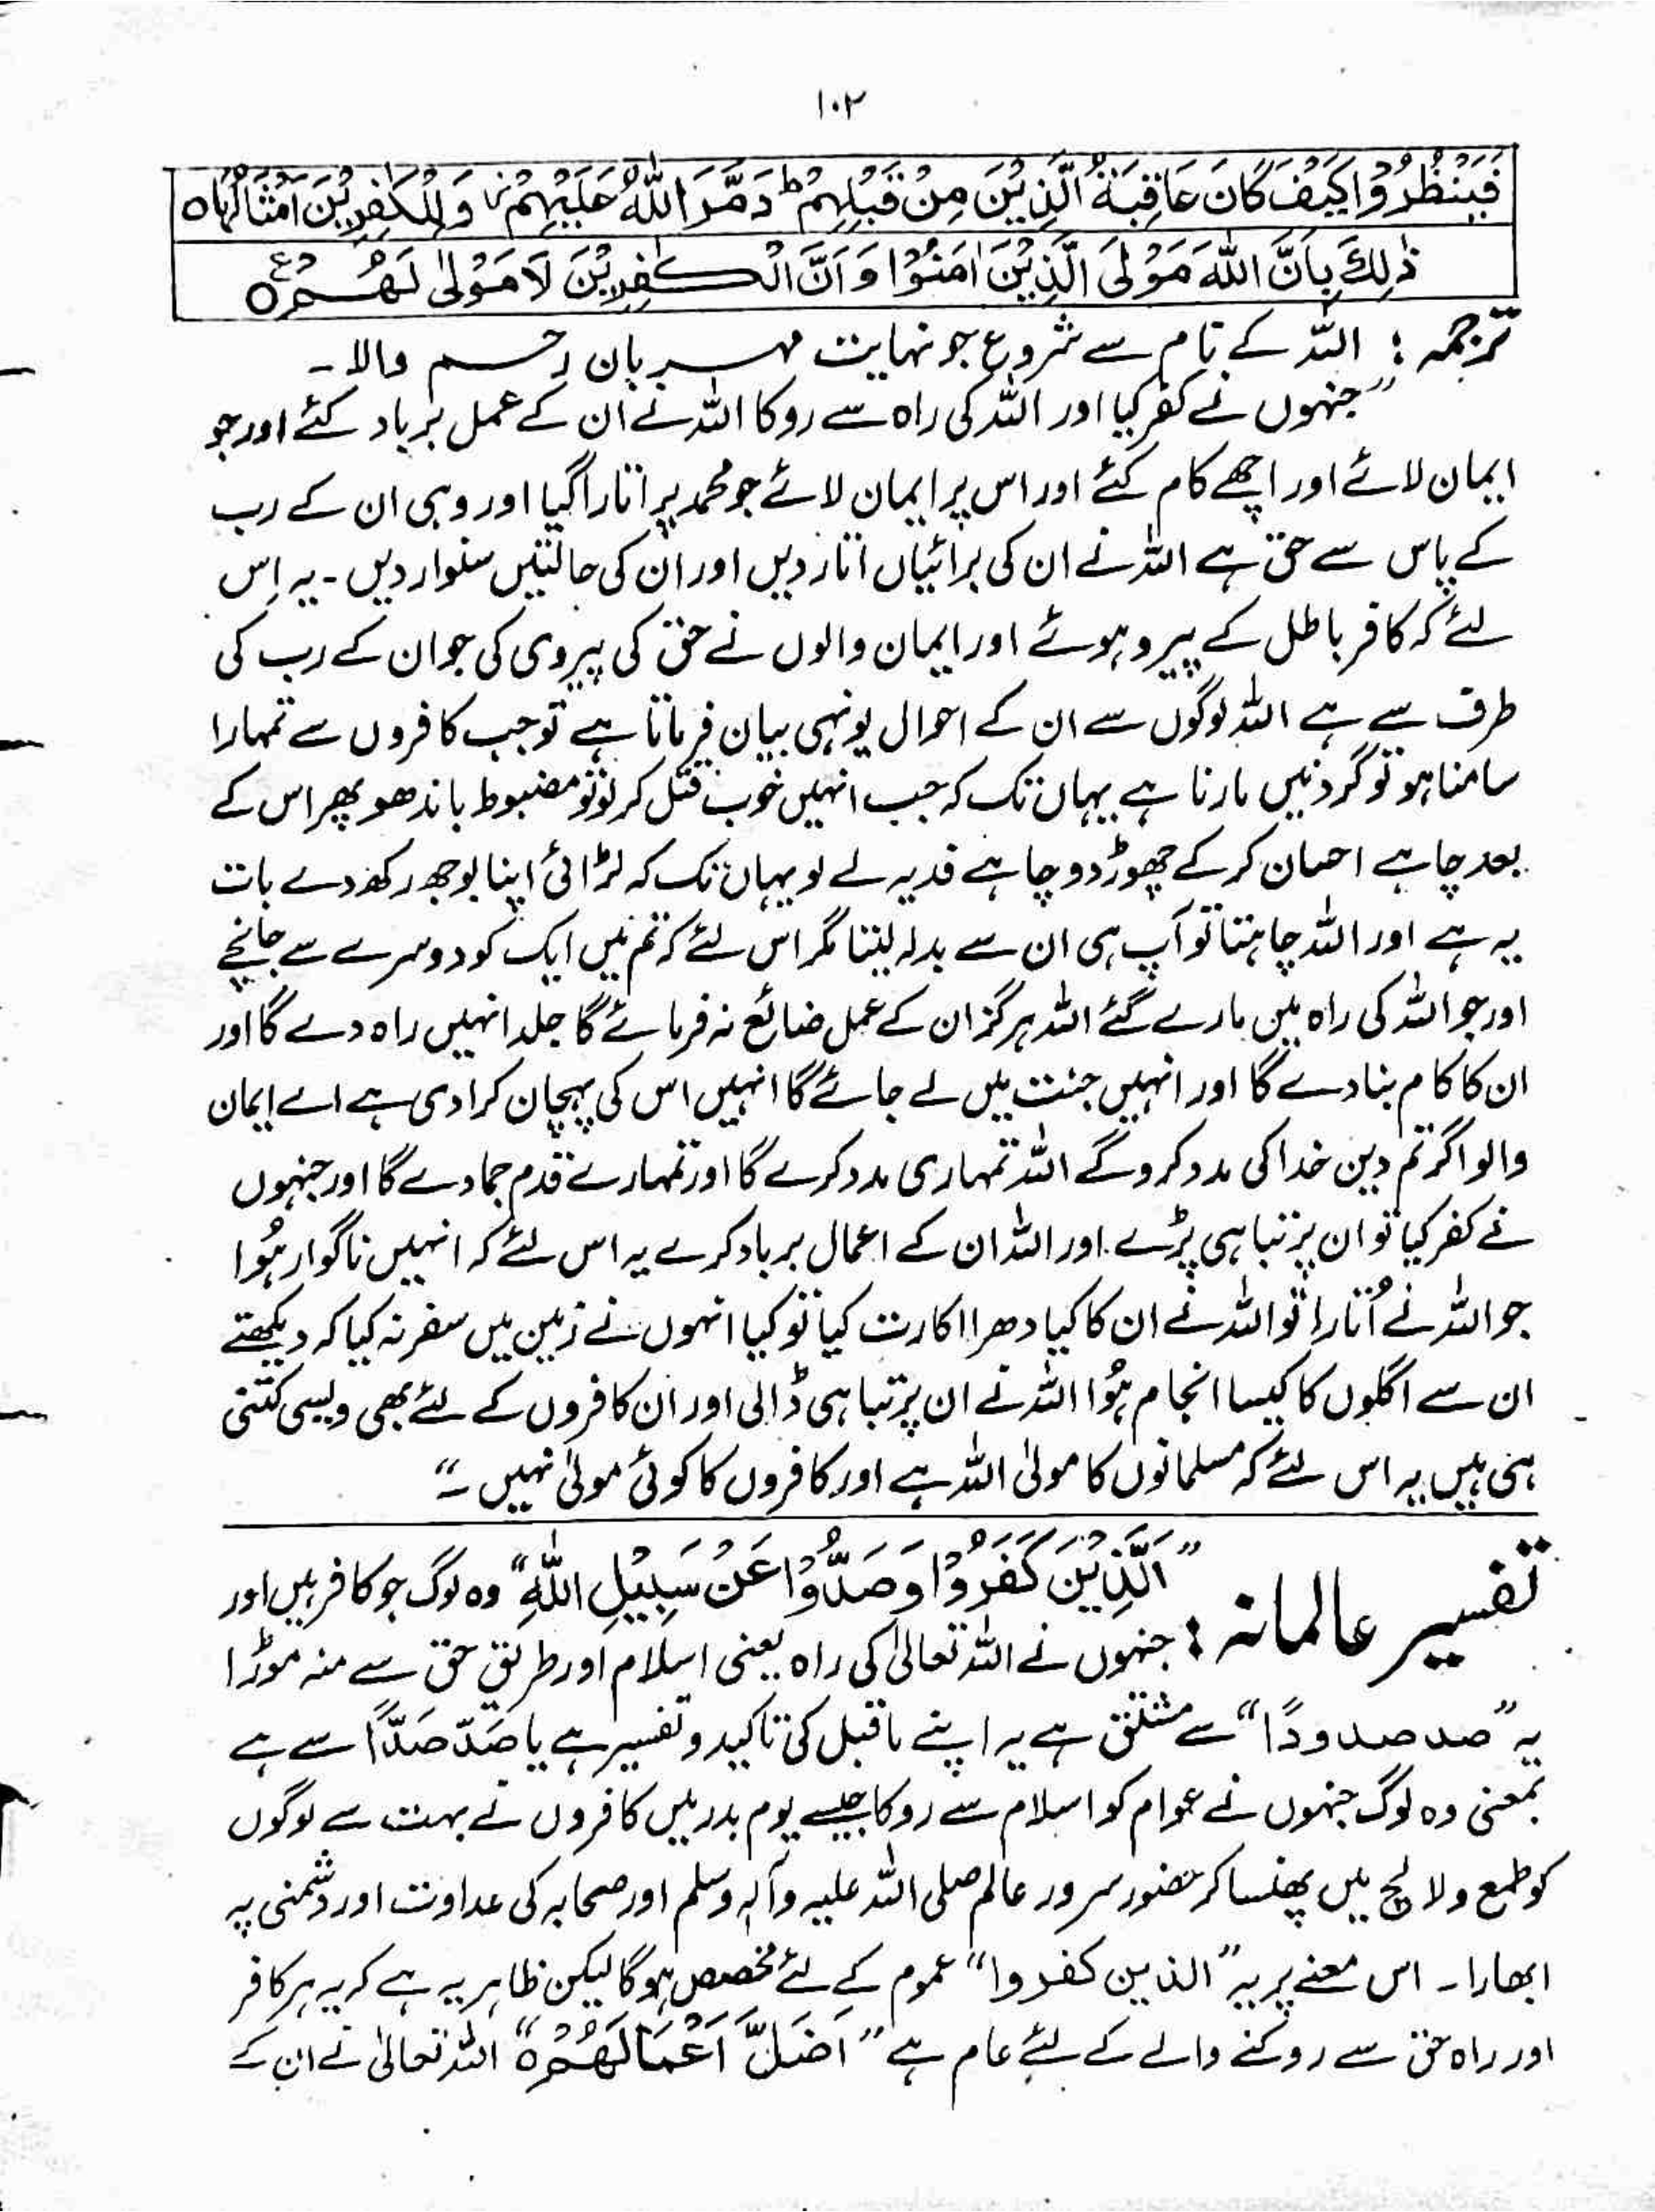 ۱۰۲
فَيَنْظُرُوْا كَيْفَ كَانَ عَاقِبَةُ الَّذِيْنَ مِنْ قَبْلِهِمْ ط دَمَّرَ اللّٰهُ عَلَيْهِمْ ز وَلِلْكٰفِرِيْنَ اَمْثَالُهَا ۝
ذٰلِكَ بِاَنَّ اللّٰهَ مَوْلَى الَّذِيْنَ اٰمَنُوْا وَاَنَّ الْكٰفِرِيْنَ لَا مَوْلٰى لَهُمْ ۝ ع
ترجمہ : اللہ کے نام سے شروع جو نہایت مہربان رحم والا ۔
”جنہوں نے کفر کیا اور اللہ کی راہ سے روکا اللہ نے ان کے عمل برباد کئے اور جو
ایمان لائے اور اچھے کام کئے اور اس پر ایمان لائے جو محمد پر اتارا گیا اور وہی ان کے رب
کے پاس سے حق ہے اللہ نے ان کی برائیاں اتار دیں اور ان کی حالتیں سنوار دیں ۔ یہ اِس
لئے کہ کافر باطل کے پیرو ہوئے اور ایمان والوں نے حق کی پیروی کی جو ان کے رب کی
طرف سے ہے اللہ لوگوں سے ان کے احوال یونہی بیان فرماتا ہے تو جب کافروں سے تمہارا
سامنا ہو تو گردنیں مارنا ہے یہاں تک کہ جب انہیں خوب قتل کر لو تو مضبوط باندھو پھر اس کے
بعد چاہے احسان کر کے چھوڑ دو چاہے فدیہ لے لو یہاں تک کہ لڑائی اپنا بوجھ رکھ دے بات
یہ ہے اور اللہ چاہتا تو آپ ہی ان سے بدلہ لیتا مگر اس لئے کہ تم میں ایک کو دوسرے سے جانچے
اور جو اللہ کی راہ میں مارے گئے اللہ ہرگز ان کے عمل ضائع نہ فرمائے گا جلد انہیں راہ دے گا اور
ان کا کام بنا دے گا اور انہیں جنت میں لے جائے گا انہیں اس کی پہچان کرا دی ہے اے ایمان
والو اگر تم دین خدا کی مدد کرو گے اللہ تمہاری مدد کرے گا اور تمہارے قدم جما دے گا اور جنہوں
نے کفر کیا تو ان پر تباہی پڑے اور اللہ ان کے اعمال برباد کرے یہ اس لئے کہ انہیں ناگوار ہُوا
جو اللہ نے اُتارا تو اللہ نے ان کا کیا دھرا اکارت کیا تو کیا انہوں نے زمین میں سفر نہ کیا کہ دیکھتے
ان سے اگلوں کا کیسا انجام ہُوا اللہ نے ان پر تباہی ڈالی اور ان کافروں کے لئے بھی ویسی کتنی
ہی ہیں یہ اس لئے کہ مسلمانوں کا مولیٰ اللہ ہے اور کافروں کا کوئی مولیٰ نہیں ۔“
تفسیر عالمانہ : ”اَلَّذِيْنَ كَفَرُوْا وَصَدُّوْا عَنْ سَبِيْلِ اللّٰهِ“ وہ لوگ جو کافر ہیں اور
جنہوں نے اللہ تعالیٰ کی راہ یعنی اسلام اور طریق حق سے منہ موڑا
یہ ”صد صدودًا“ سے مشتق ہے یہ اپنے ماقبل کی تاکید و تفسیر ہے یا صَدّ صَدًّا سے ہے
بمعنی وہ لوگ جنہوں نے عوام کو اسلام سے روکا جیسے یوم بدر میں کافروں نے بہت سے لوگوں
کو طمع و لالچ میں پھنسا کر حضور سرور عالم صلی اللہ علیہ وآلہٖ وسلم اور صحابہ کی عداوت اور دشمنی پہ
ابھارا ۔ اس معنے پر یہ ”الذین کفروا“ عموم کے لئے مخصص ہوگا لیکن ظاہر یہ ہے کہ یہ ہر کافر
اور راہ حق سے روکنے والے کے لئے عام ہے ”اَضَلَّ اَعْمَالَهُمْ ۝“ اللہ تعالیٰ نے ان کے